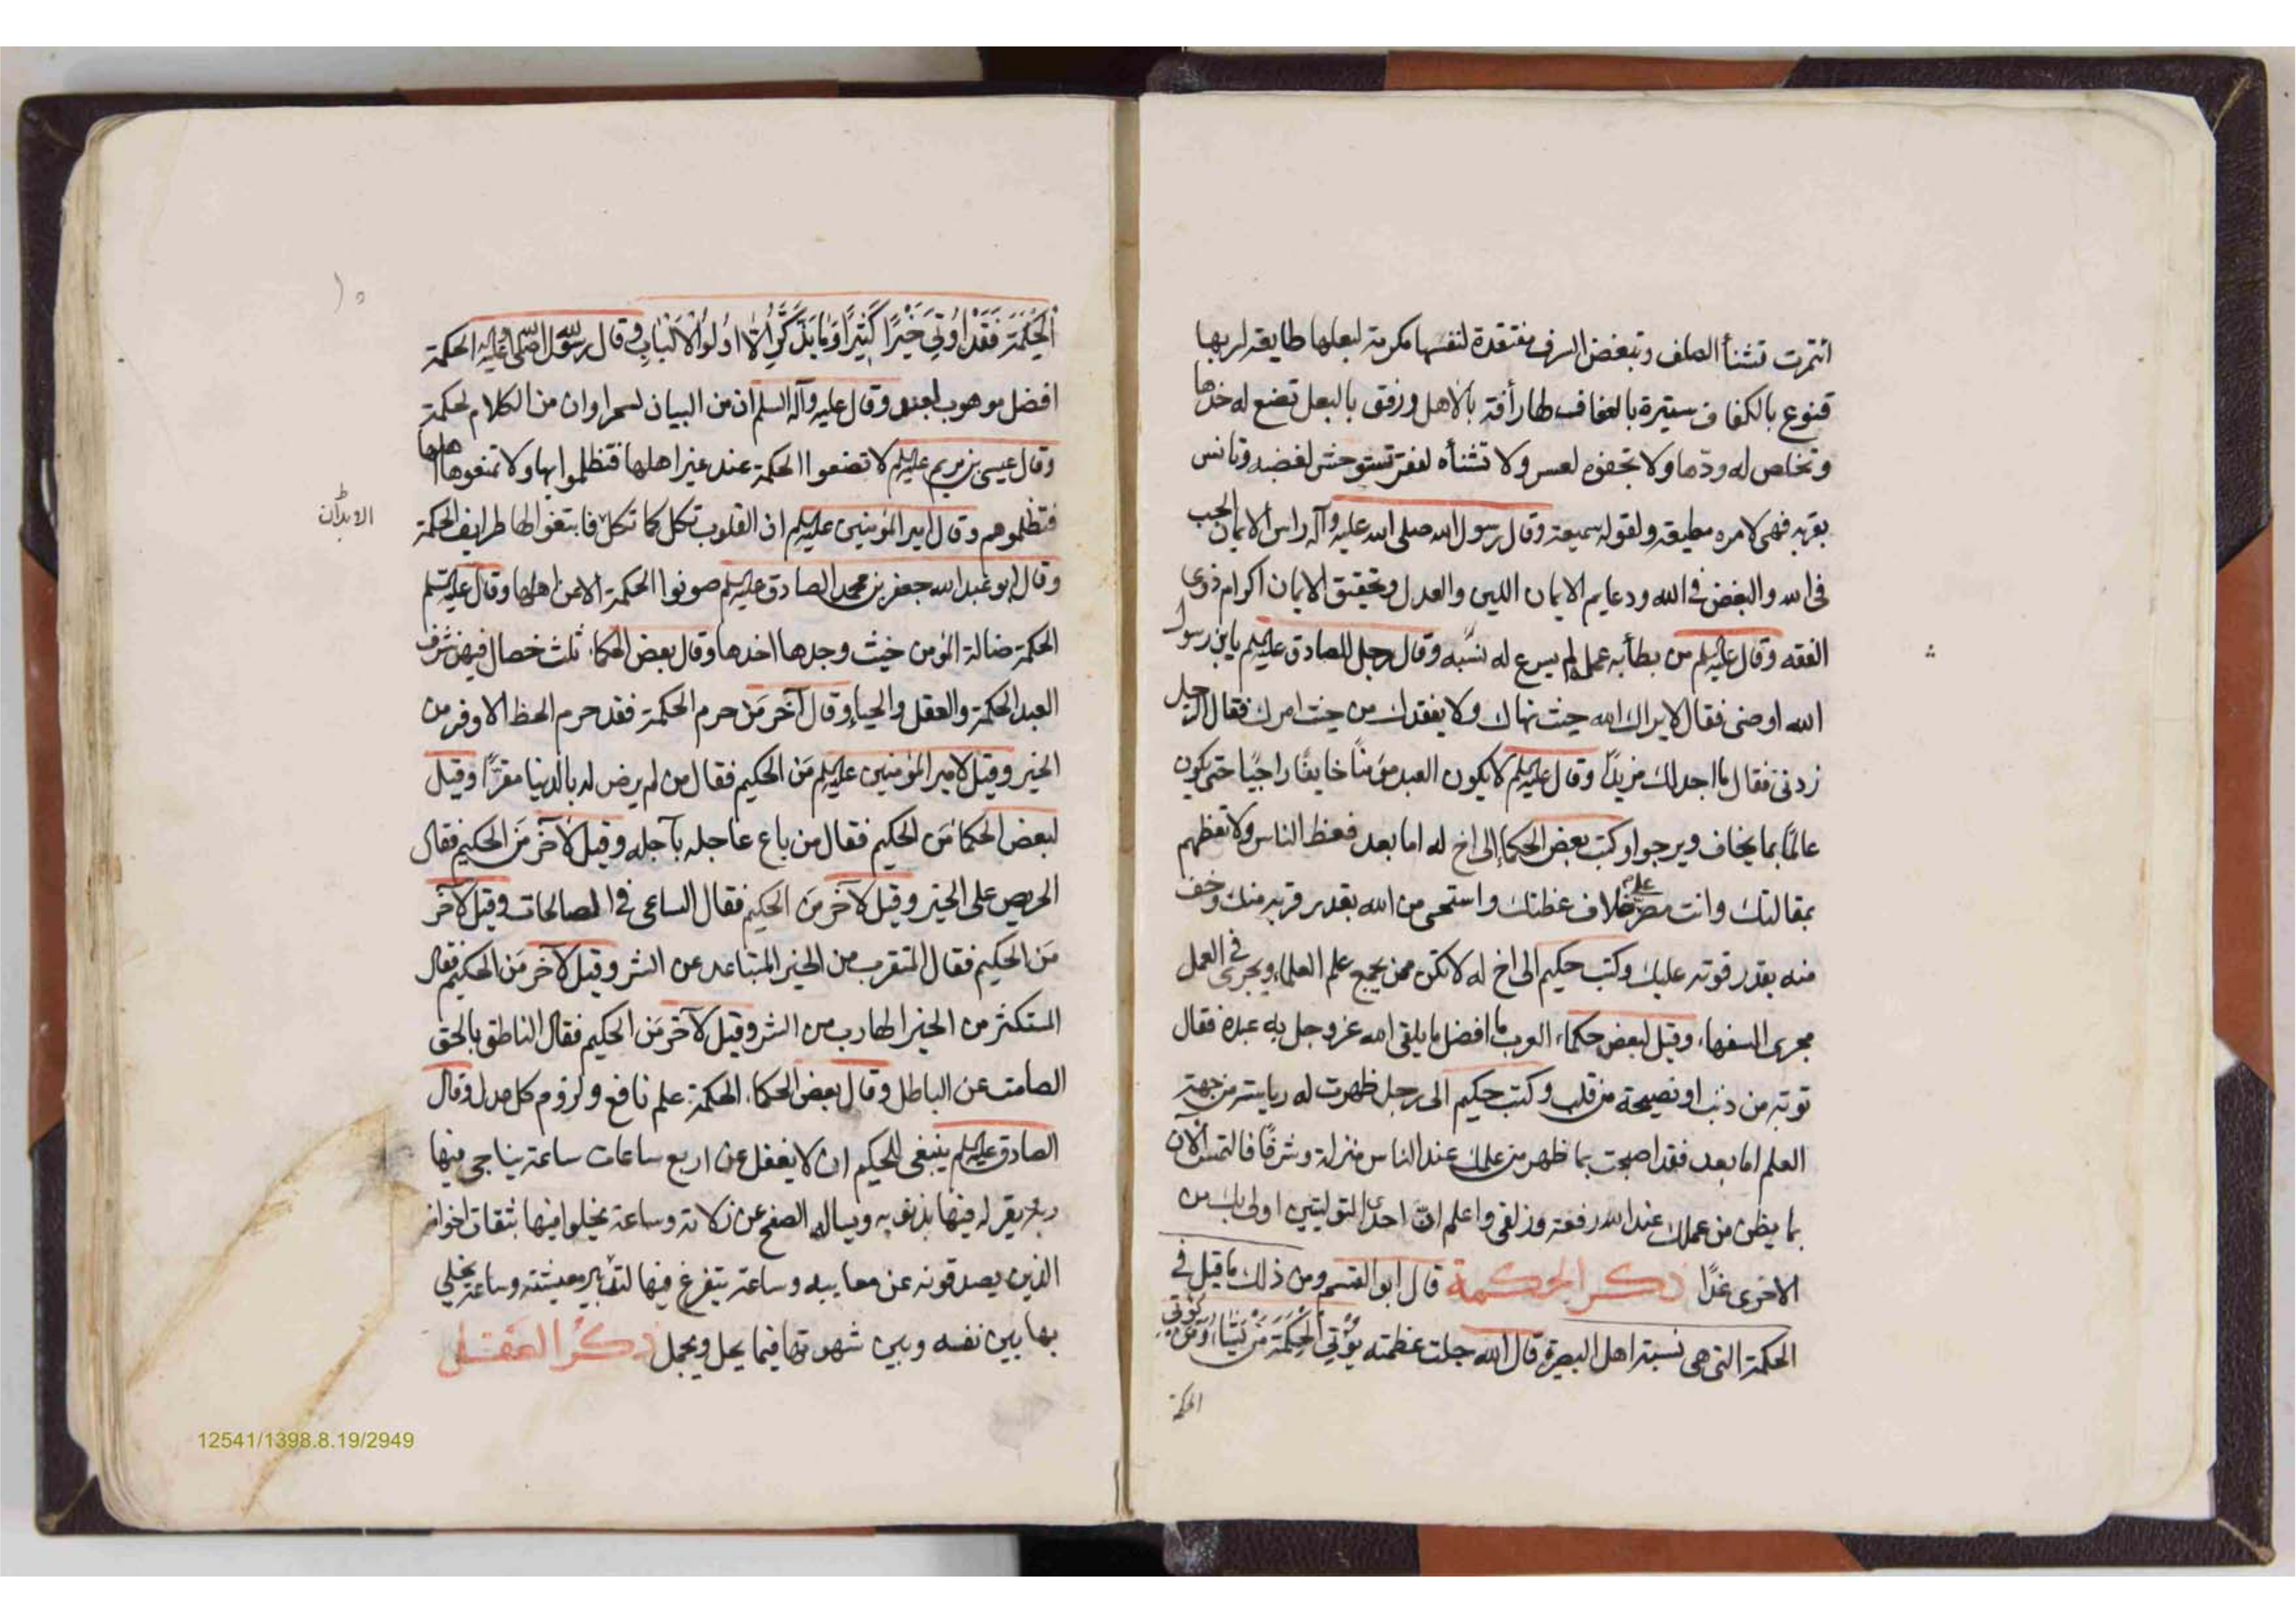 ائتمرت تشنأ الصلف وتبغض السرف مفتقدة لنفسها مكرمة لبعلها طايعة لربها
قنوع بالكفاف ستيرة بالعفاف لها رأفة بالاهل ورفق بالبعل تضع له خدها
وتخلص له ودّها ولا تجفوه لعسر ولا تشنأه لفقر تستوحش لغضبه وتانس
بقربه فهى لامره مطيعة ولقوله سميعة وقال رسول الله صلى الله عليه وآله راس الايمان الحب
فى الله والبغض فى الله ودعايم الايمان الدين والعدل وتحقيق الايمان اكرام ذوى
الفقه وقال عليه السلم من بطأ به عمله لم يسرع له نسبه وقال رجل للصادق عليه السلم يا بن رسول
الله اوصنى فقال لا يراك الله حيث نهاك ولا يفقدك من حيث امرك فقال الرجل
زدنى فقال ما اجد لك مزيدًا وقال عليه السلم لا يكون العبد مؤمنًا خايفًا راجيًا حتى يكون
عالمًا بما يخاف ويرجوا وكتب بعض الحكما إلى اخ له اما بعد فعظ الناس ولا تعظهم
بمقالتك وانت مصر على خلاف عظتك واستحى من الله بقدر قربه منك وخف
منه بقدر قوته عليك وكتب حكيم الى اخ له لا تكن ممن يجمع علم العلماء ويجرى فى العمل
مجرى السفهاء وقيل لبعض حكماء العرب ما افضل ما يلقى الله عز وجل به عبده فقال
توبة من ذنب او نصيحة من قلب وكتب حكيم الى رجل ظهرت له رياسته من جهة
العلم اما بعد فقد اصبحت بما ظهر من علمك عند الناس منزلة وشرفًا فالتمس الآن
بما يظن من عملك عند الله رفعة وزلفى واعلم انّ احدى المنزلتين اولى بك من
الاخرى غدًا ذكر الحكمة قال ابو القسم ومن ذلك ما قيل فى
الحكمة التى هى نسبة اهل البصرة قال الله جلت عظمته يُؤْتِي الْحِكْمَةَ مَنْ يَشَاءُ وَمَنْ يُؤْتَ
الحكمة
١٠
الْحِكْمَةَ فَقَدْ اُوتِيَ خَيْرًا كَثِيرًا وَمَا يَذَّكَّرُ اِلَّا اُولُوا الْاَلْبَابِ وقال رسول الله صلى الله عليه وآله الحكمة
افضل موهوب لعبد وقال عليه وآله السلم ان من البيان لسحرا وان من الكلام لحكمة
وقال عيسى بن مريم عليه السلم لا تضعوا الحكمة عند غير اهلها فتظلموا بها ولا تمنعوها اهلها
فتظلموهم وقال امير المؤمنين عليه السلم ان القلوب تكل كما تكل فابتغوا لها طرايف الحكمة
وقال ابو عبد الله جعفر بن محمد الصادق عليه السلم صونوا الحكمة الا عن اهلها وقال عليه السلم
الحكمة ضالة المؤمن حيث وجدها اخذها وقال بعض الحكماء ثلث خصال فيهن شرف
العبد الحكمة والعقل والحياء وقال آخر مَن حرم الحكمة فقد حرم الحظ الاوفر من
الخير وقيل لامير المؤمنين عليه السلم مَن الحكيم فقال من لم يرض له بالدنيا مقرًّا وقيل
لبعض الحكما مَن الحكيم فقال من باع عاجله بآجله وقيل لآخر مَن الحكيم فقال
الحريص على الخير وقيل لآخر مَن الحكيم فقال الساعى فى الصالحات وقيل لآخر
مَن الحكيم فقال المتقرب من الخير المتباعد عن الشر وقيل لآخر مَن الحكيم فقال
المستكثر من الخير الهارب من الشر وقيل لآخر مَن الحكيم فقال الناطق بالحق
الصامت عن الباطل وقال بعض الحكماء الحكمة علم نافع ولزوم كل عدل وقال
الصادق عليه السلم ينبغى للحكيم ان لا يغفل عن اربع ساعات ساعة يناجى فيها
ربه يقر له فيها بذنوبه ويساله الصفح عن زلاته وساعة يخلوا فيها بثقات اخوانه
الذين يصدقونه عن معايبه وساعة يتفرغ فيها لتدبير معيشته وساعة يخلي
بها بين نفسه وبين شهوتها فيما يحل ويجمل ذكر العقل
12541/1398.8.19/2949